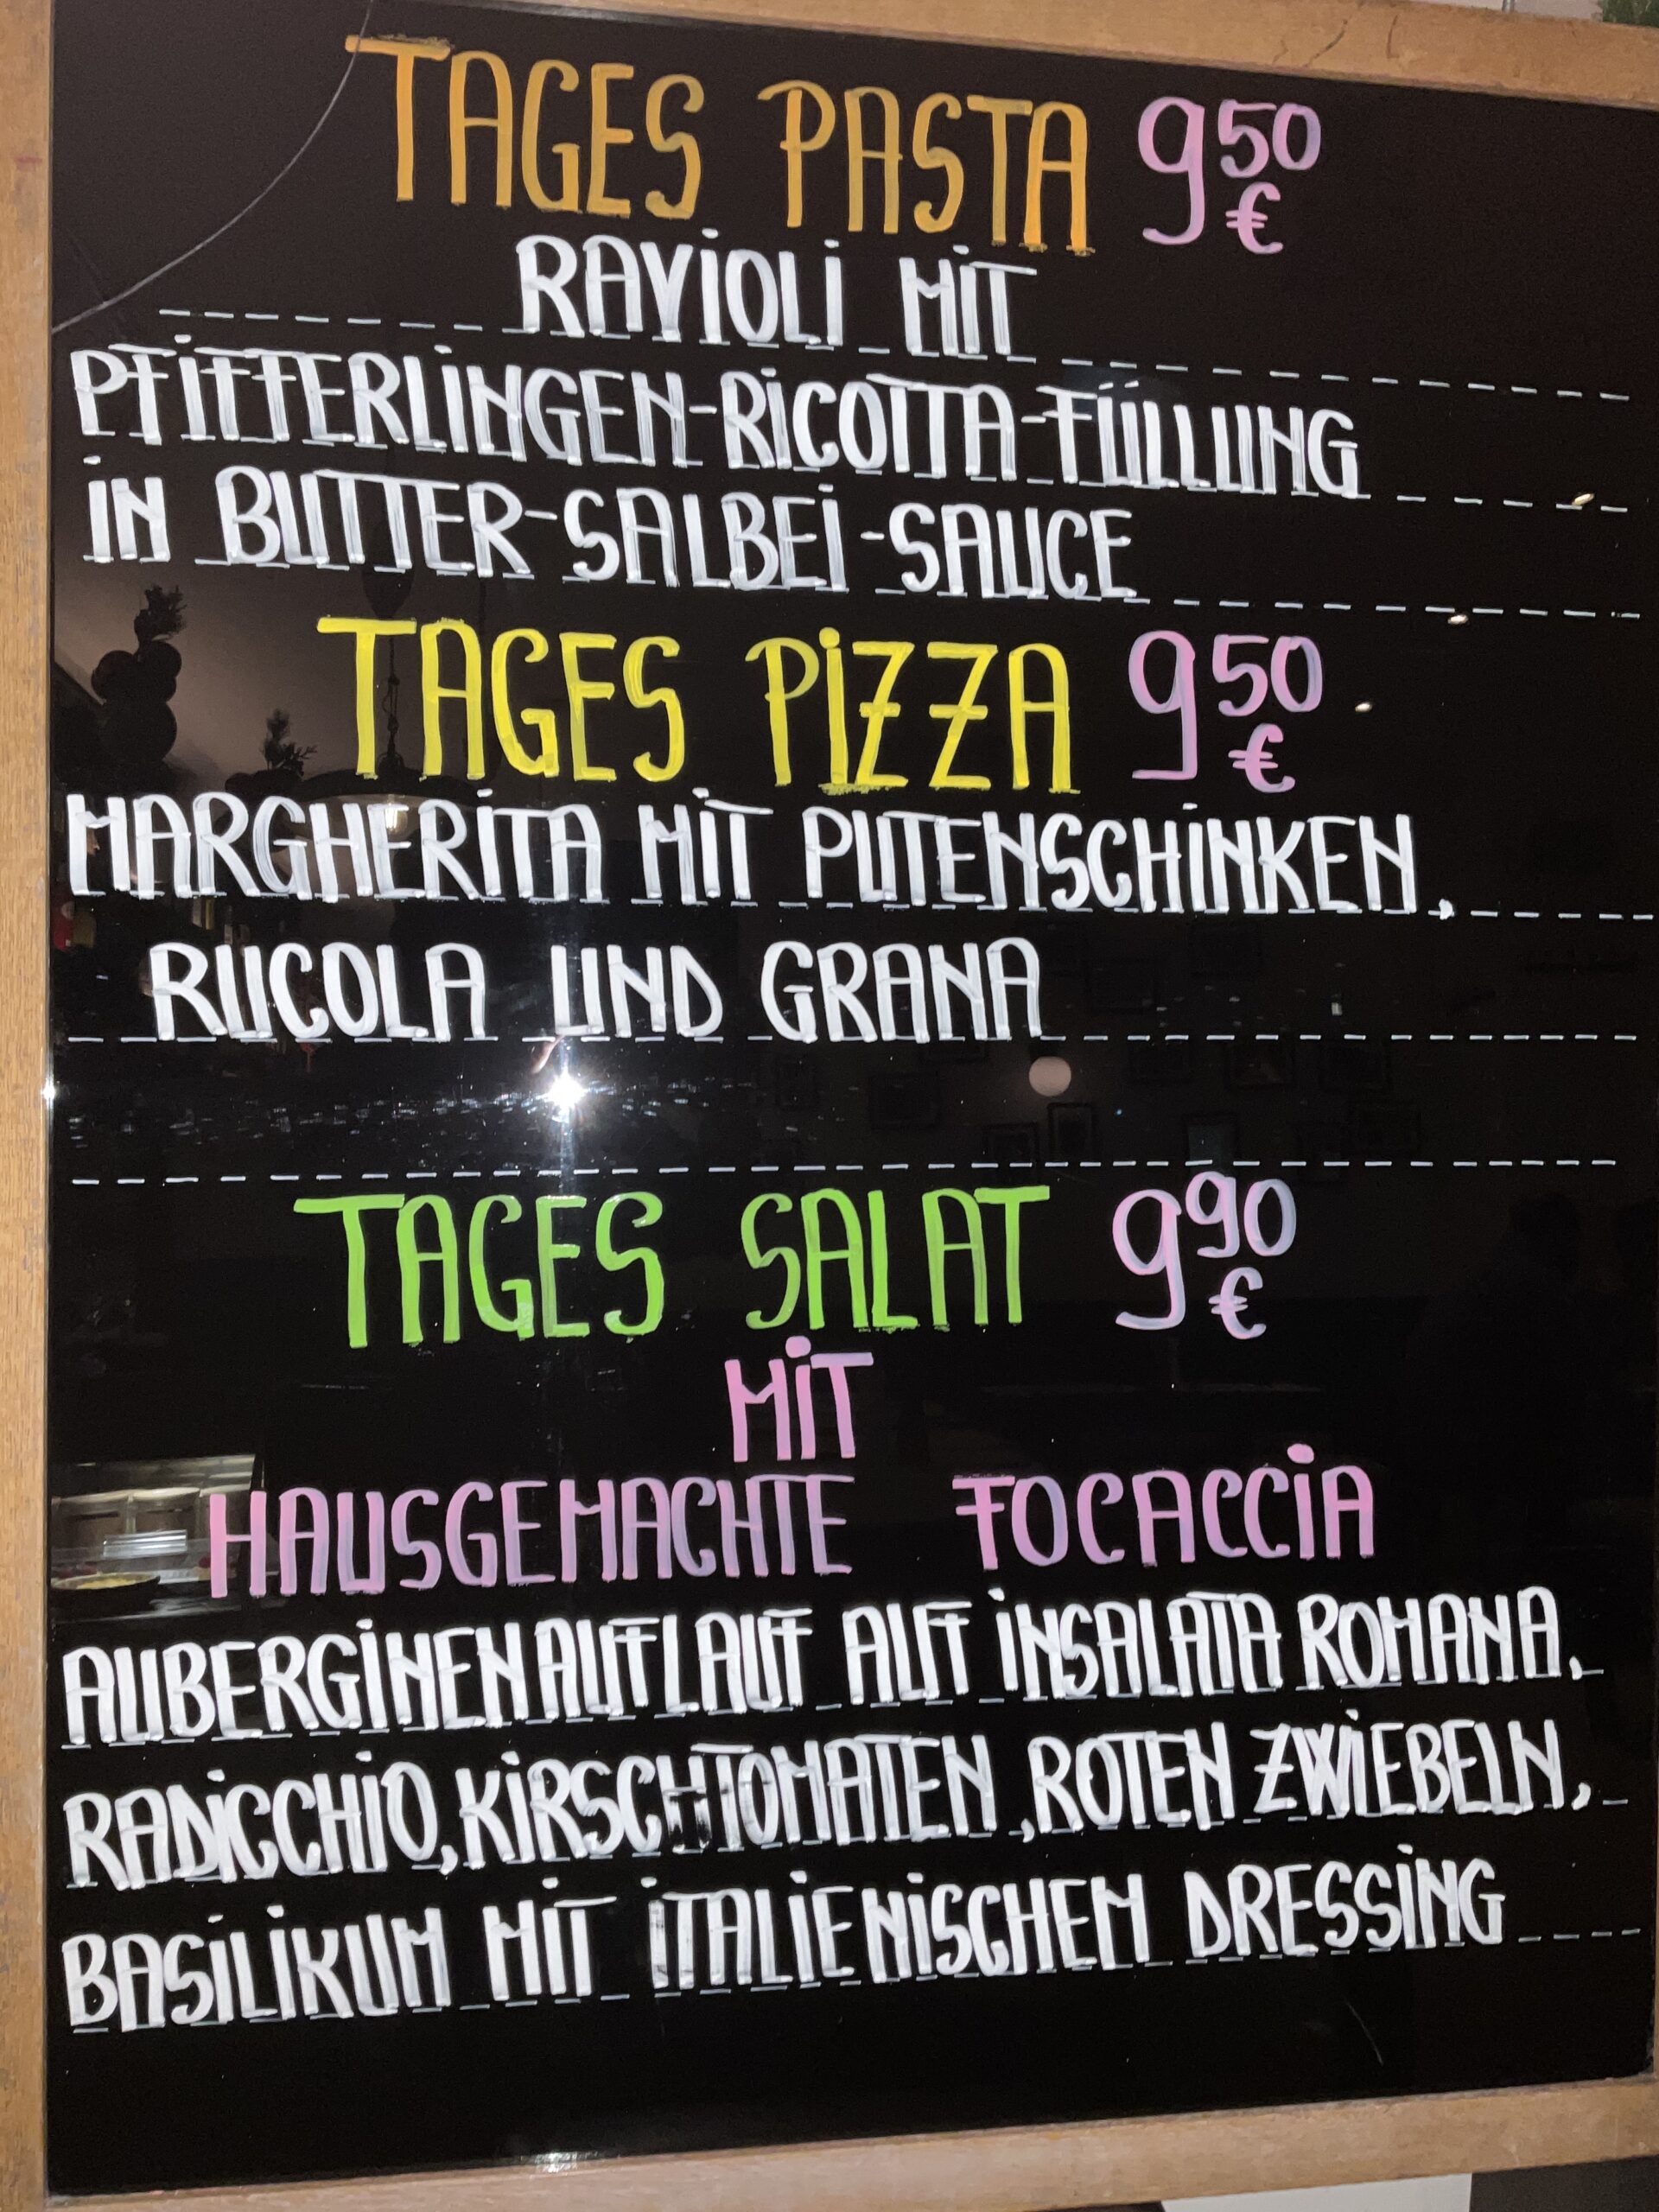 TAGES PASTA 9,50 €
RAViOLi MiT
PFiFFERLiNGEN-RiCOTTA-FÜLLUNG
iN BUTTER-SALBEi-SAUCE
TAGES PiZZA 9,50 €
MARGHERiTA MiT PUTENSCHiNKEN,
RUCOLA UND GRANA
TAGES SALAT 9,90 €
MiT
HAUSGEMACHTE FOCACCiA
AUBERGiNENAUFLAUF AUF iNSALATA ROMANA,
RADiCCHiO, KiRSCHTOMATEN, ROTEN ZWiEBELN,
BASiLiKUM MiT iTALiENiSCHEM DRESSiNG